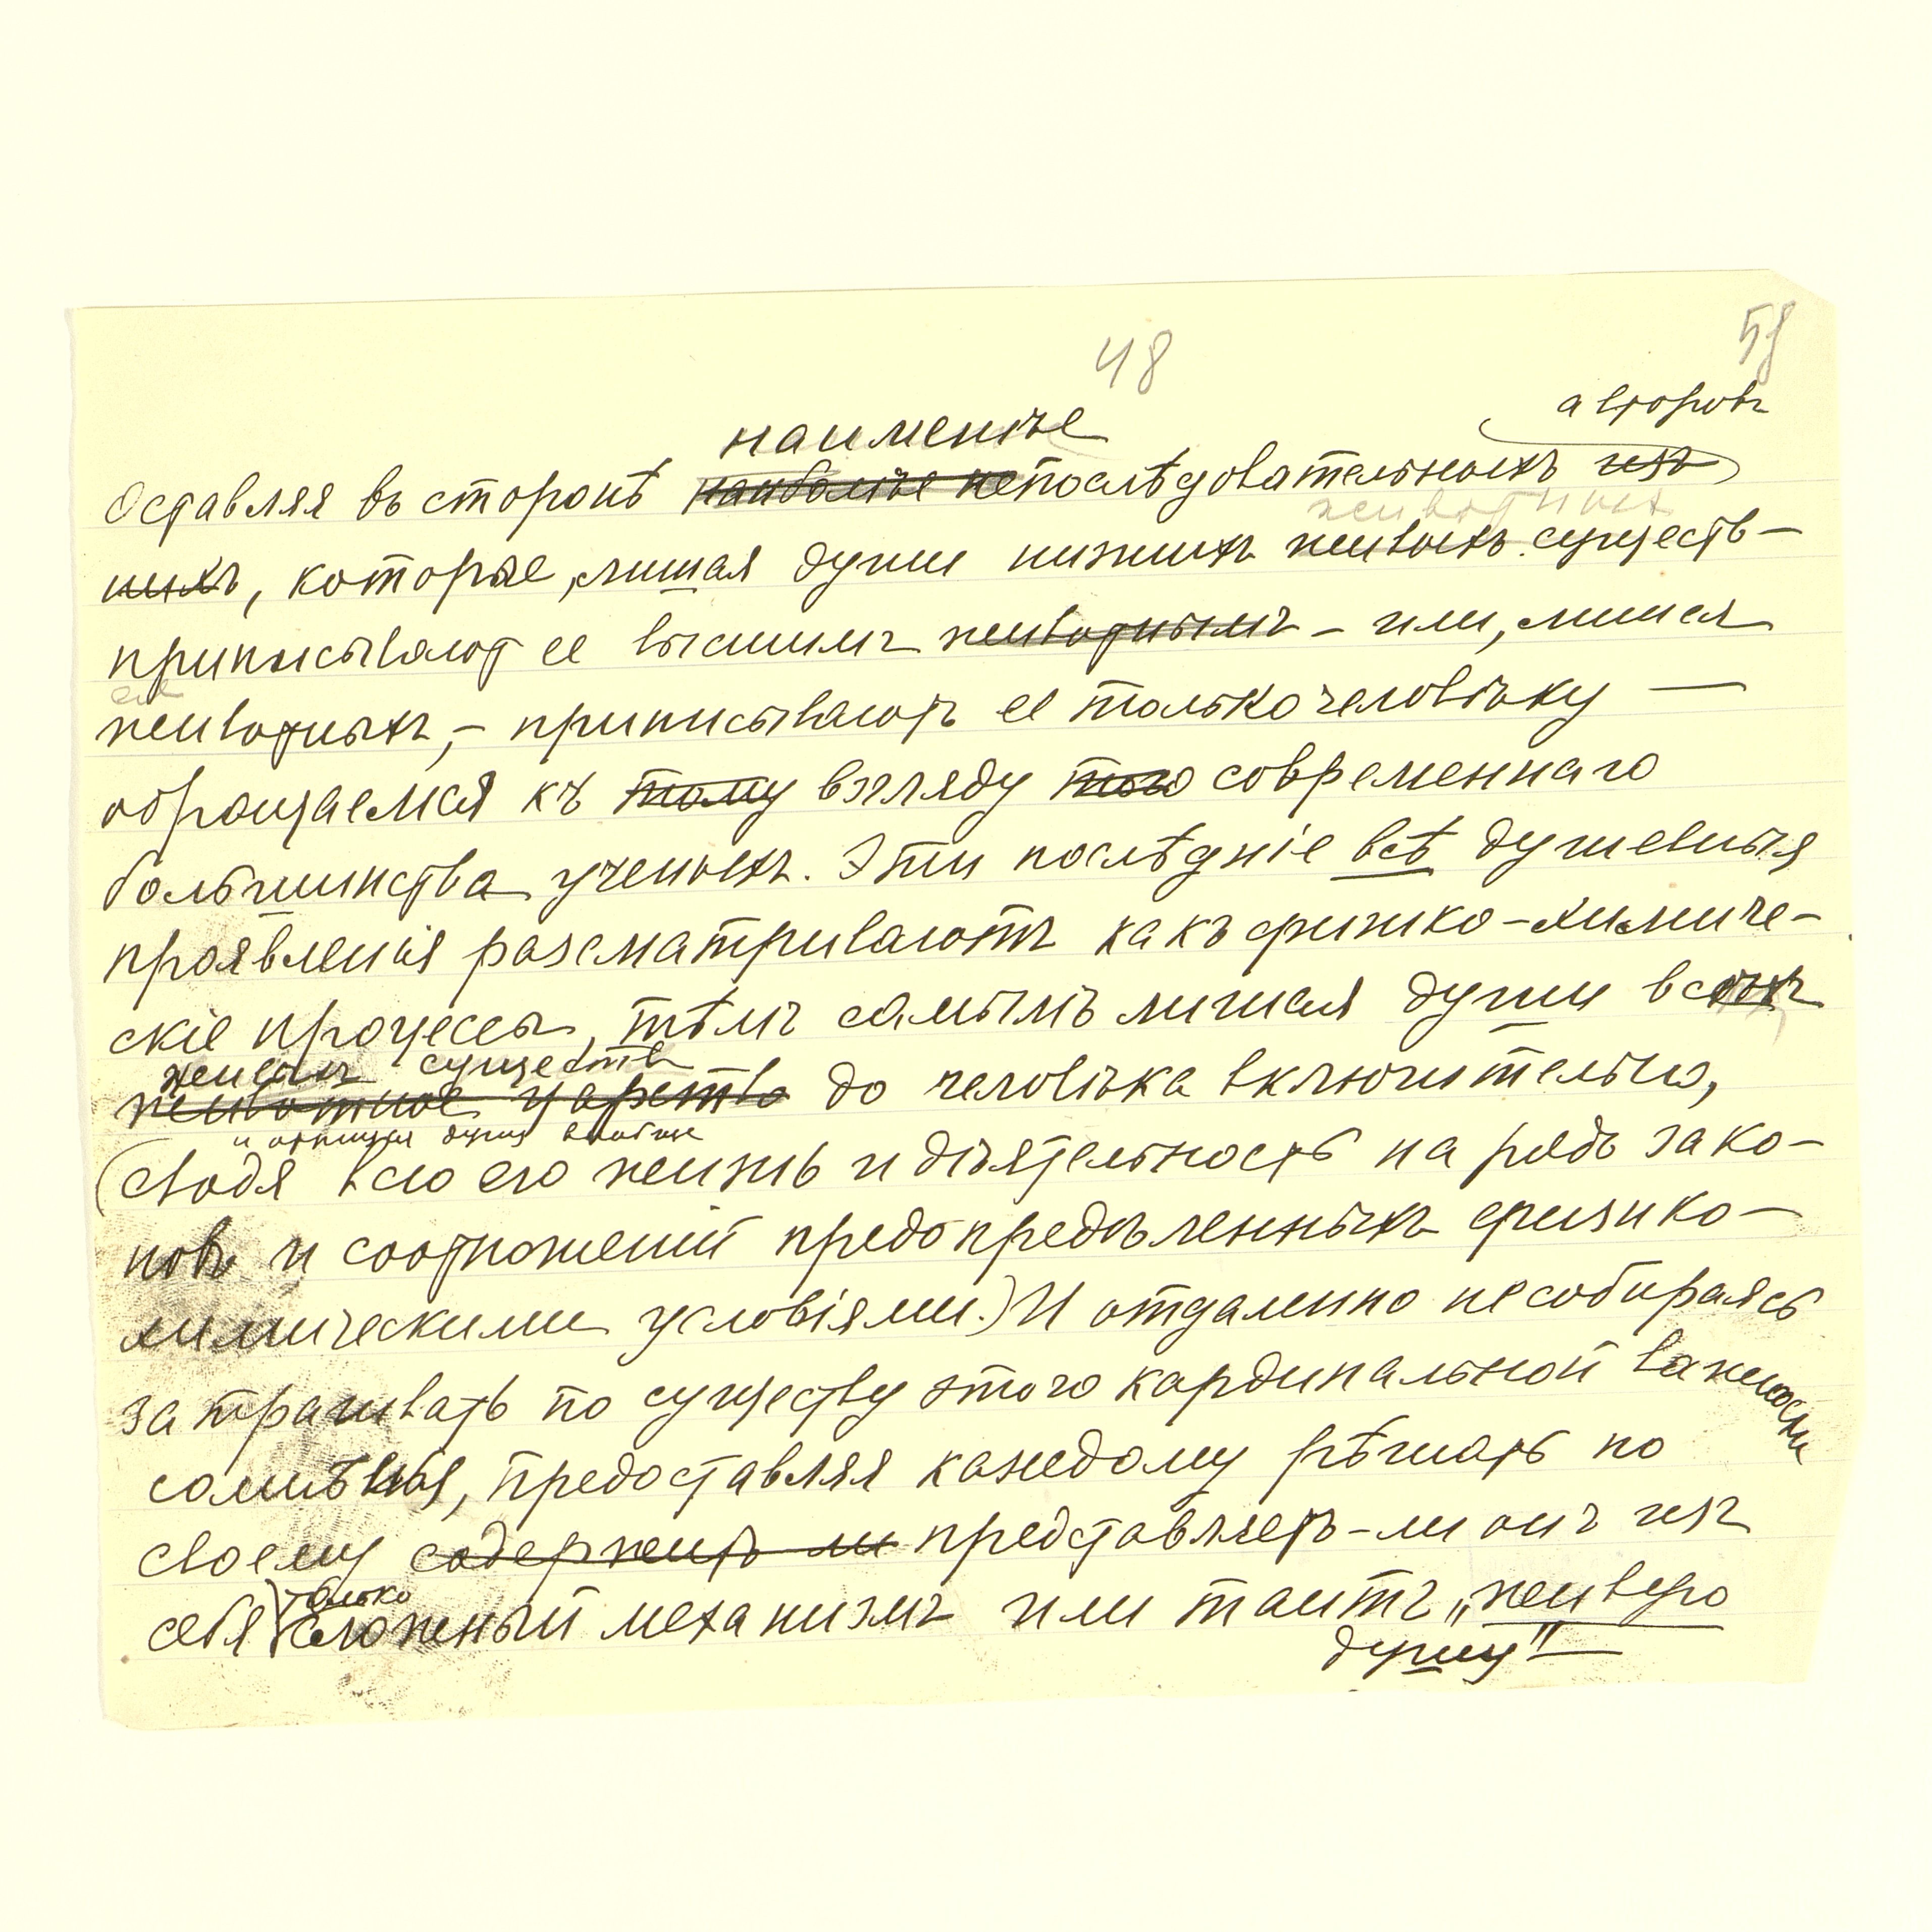 48
58
авторовъ
наименѣе
Оставляя въ сторонѣ наиболѣе непослѣдовательныхъ изъ
животныхъ
нихъ, которые, лишая души низшихъ живыхъ существ-
приписывают ее высшимъ животнымъ - или, лишая
ее
животныхъ, - приписываютъ ее только человѣку —
обращаемся къ тому взгляду того современнаго
большинства ученыхъ. Эти послѣдніе всѣ душевныя
проявленія разсматриваютъ какъ физико-химиче-
скіе процессы, тѣмъ самымъ лишая души всѣхъ
живыхъ существъ
животное царство до человѣка включительно,
и отрицая душу вообще
(сводя всю его жизнь и дѣятельность на рядъ зако-
новъ и соотношеній предопредѣленныхъ физико-
химическими условіями.) И отдаленно не собираясь
затрагивать по существу этого кардинальной важности
сомнѣнія, предоставляя каждому рѣшать по
своему содержитъ ли представляетъ-ли онъ изъ
только
себя сложный механизмъ или таитъ „живую
душу"